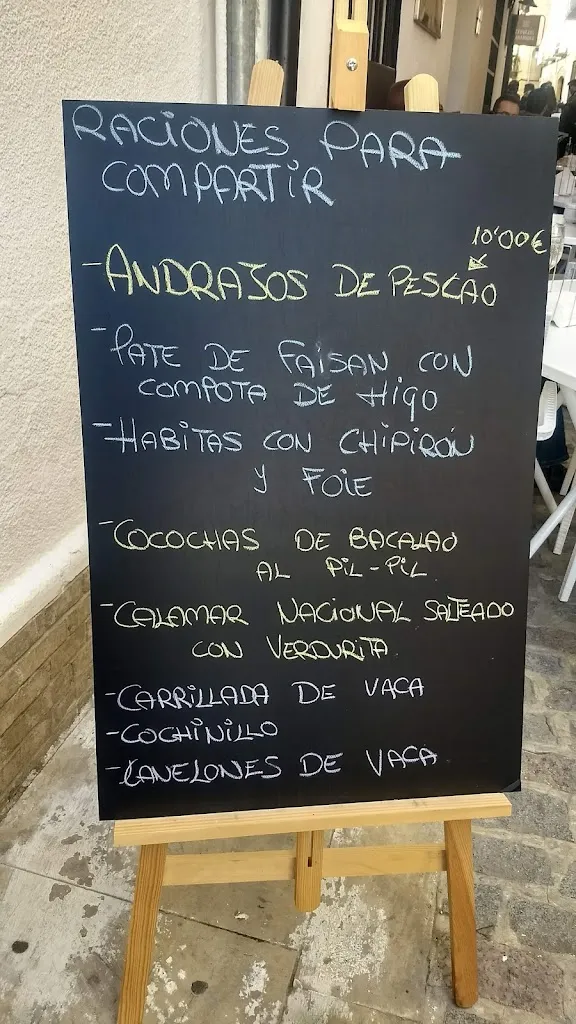 RACIONES PARA
COMPARTIR
10'00€
- ANDRAJOS DE PESCAO
- PATE DE FAISAN CON
COMPOTA DE HIGO
- HABITAS CON CHIPIRÓN
Y FOIE
- COCOCHAS DE BACALAO
AL PIL-PIL
- CALAMAR NACIONAL SALTEADO
CON VERDURITA
- CARRILLADA DE VACA
- COCHINILLO
- CANELONES DE VACA